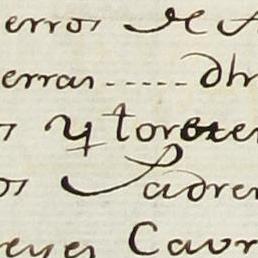 erros de A
erras ..... dhr
s y torcer
os Padre
reyes Caur